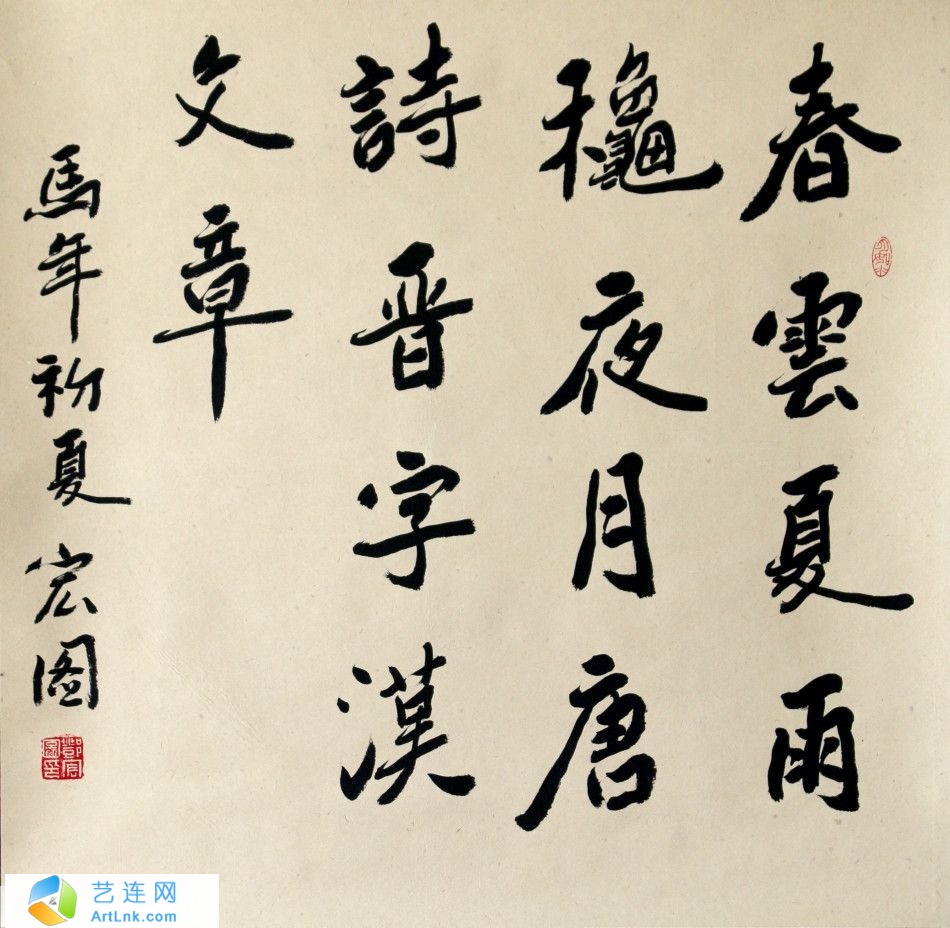 春雲夏雨
龝夜月唐
詩晋字漢
文章
馬年初夏 宏图
鄧宏圖印
艺连网
ArtLnk.com